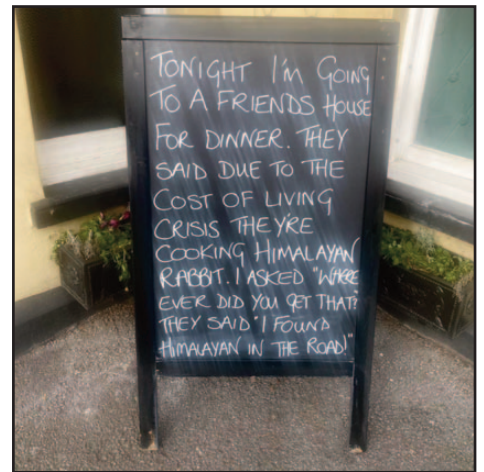 TONIGHT I'm GOING
TO A FRIENDS HOUSE
FOR DINNER. THEY
SAID DUE TO THE
COST OF LIVING
CRISIS THEY'RE
COOKING HIMALAYAN
RABBIT. I ASKED "WHERE
EVER DID YOU GET THAT?
THEY SAID "I FOUND
HIMALAYAN IN THE ROAD!"